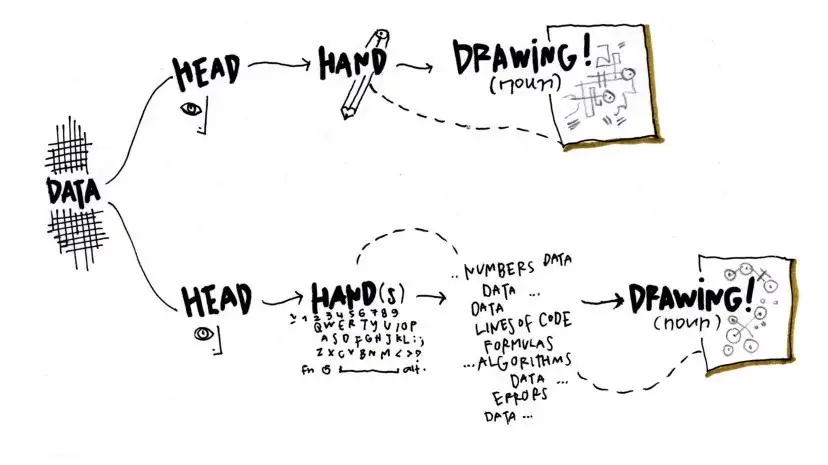 DATA
HEAD
HAND
DRAWING!
(noun)
HEAD
HAND(s)
1 2 3 4 5 6 7 8 9
Q W E R T Y U I O P
A S D F G H J K L : ;
Z X C V B N M < > ?
fn alt.
.. NUMBERS DATA
DATA ...
DATA
LINES OF CODE
FORMULAS
... ALGORITHMS
DATA ...
ERRORS
DATA ...
DRAWING!
(noun)